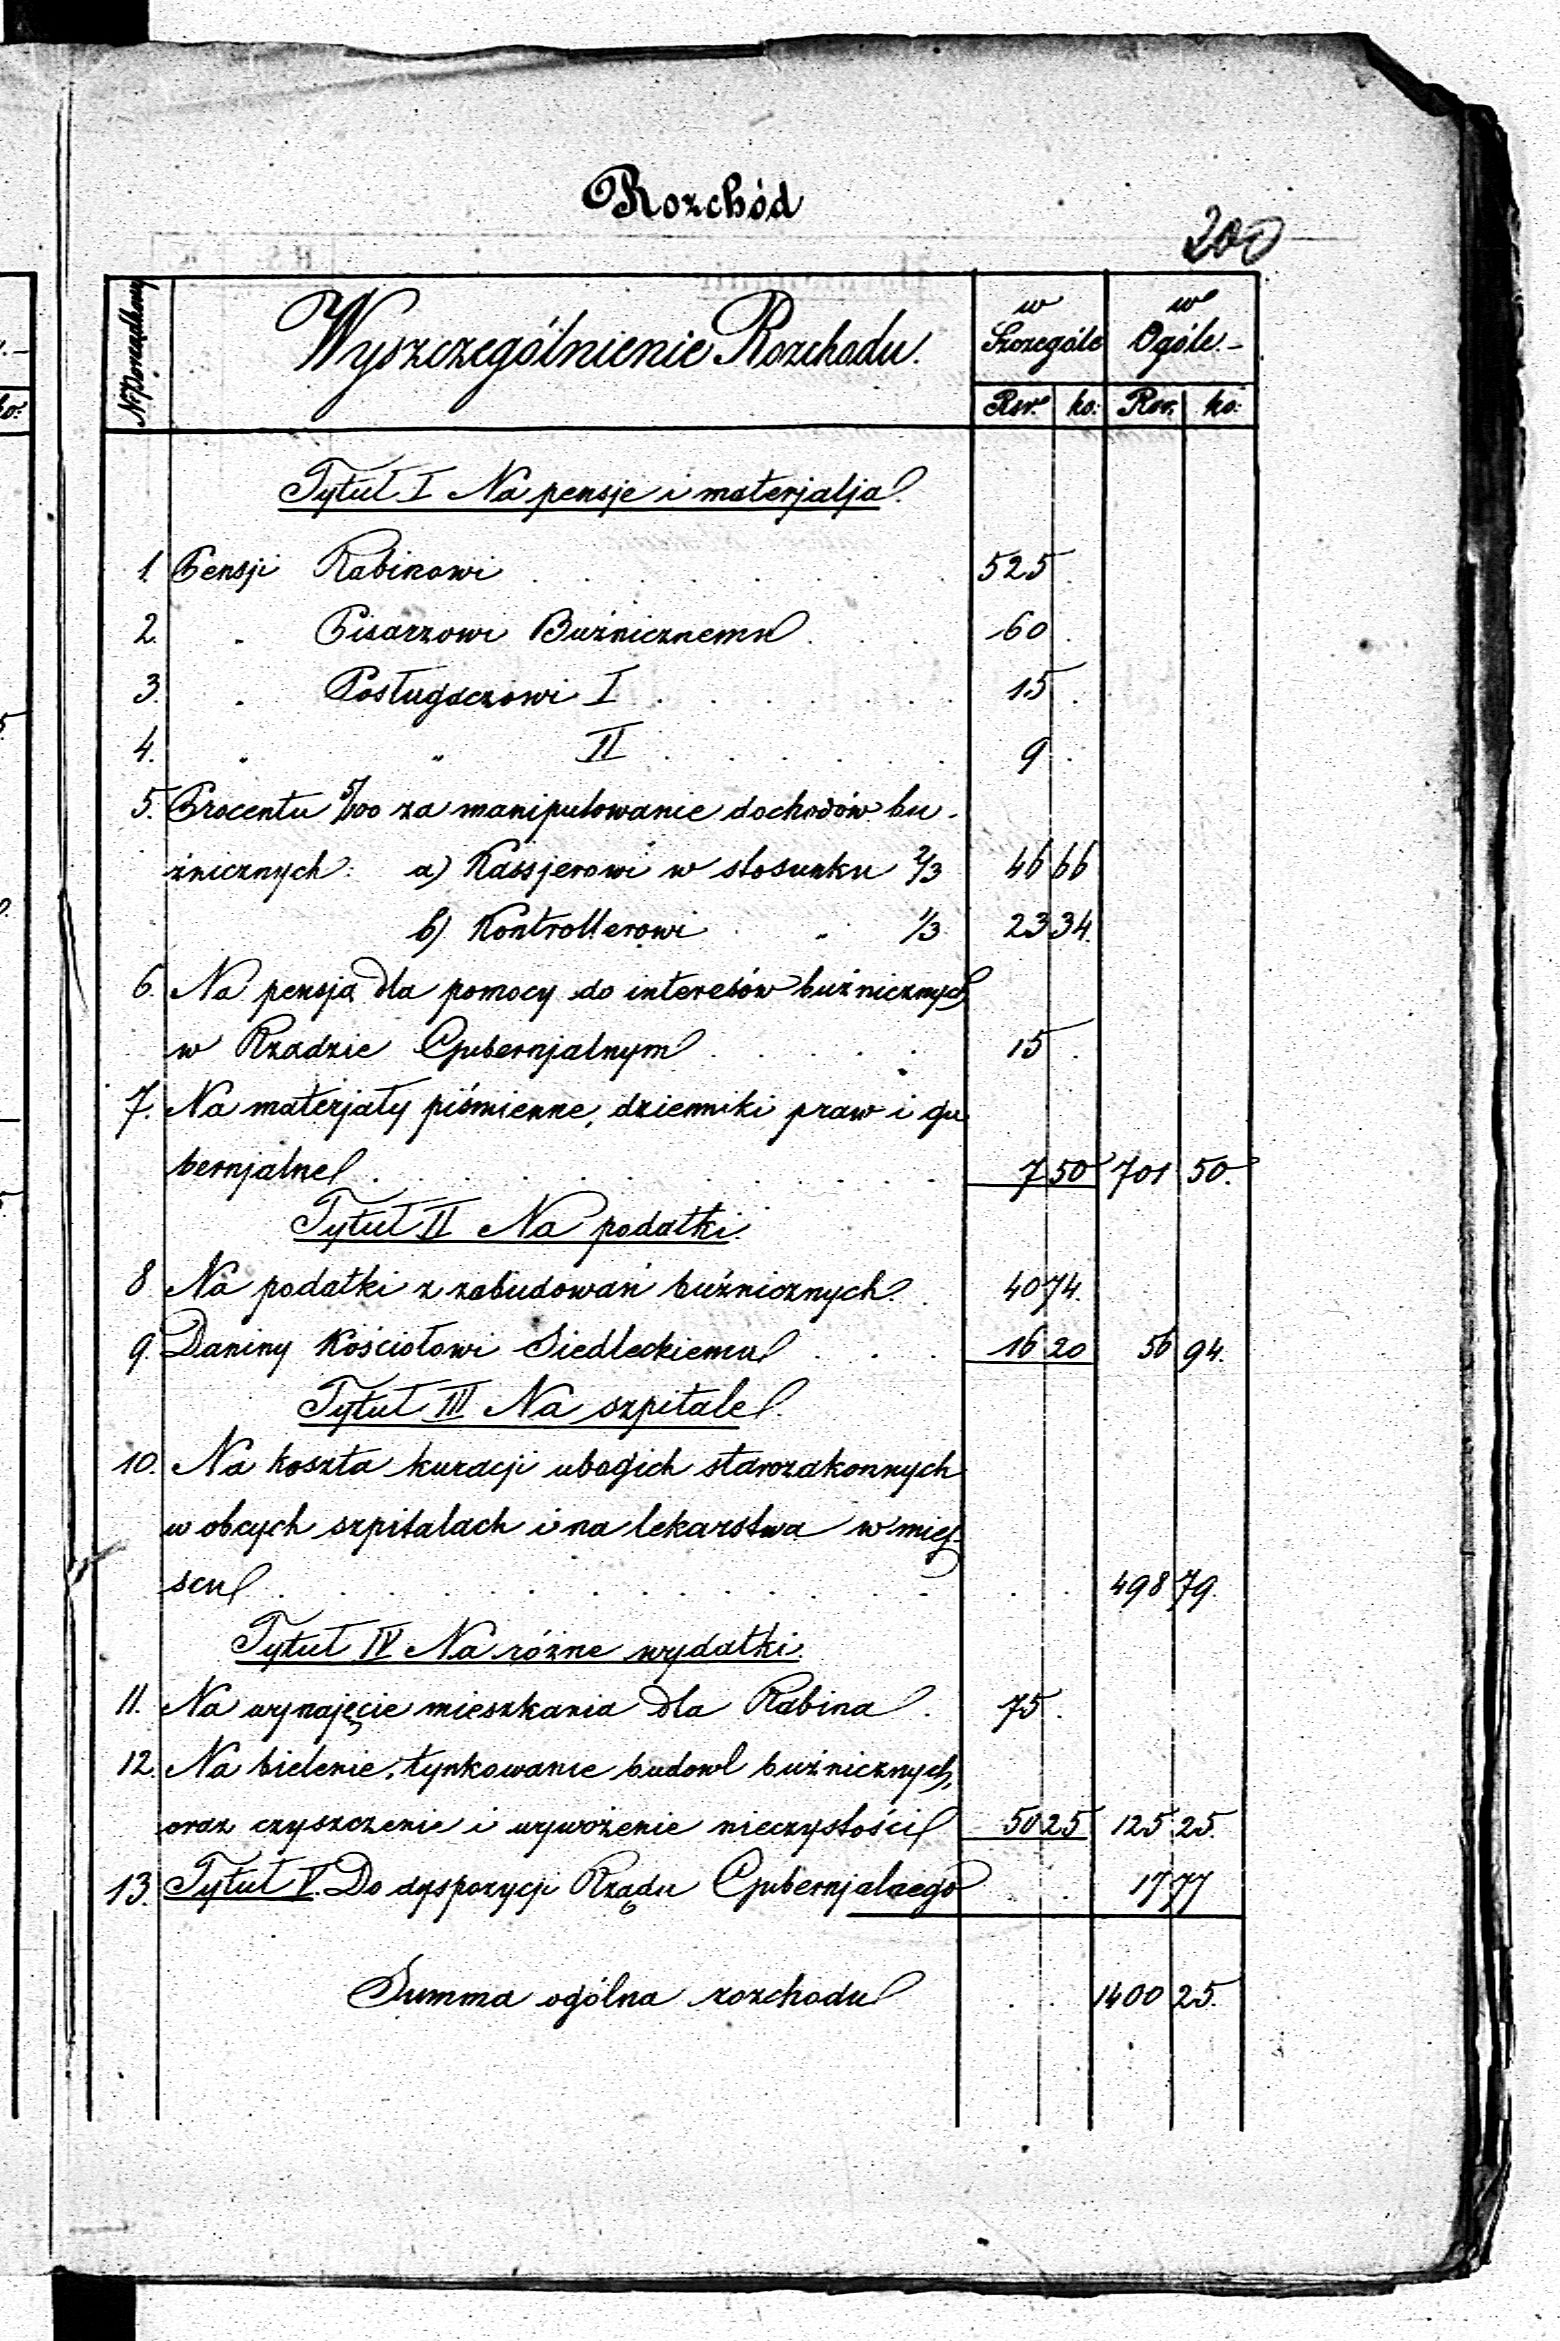 Rozchód
200
No Porządkowy
Wyszczególnienie Rozchodu.
w Szczególe
w Ogóle.-
Rsr. ko: Rsr. ko:
Tytuł I Na pensje i materjalja.
1. Pensji Rabinowi . . . . . . . . 525 .
2. " Pisarzowi Bużnicznemu . . . 60 .
3. " Posługaczowi I . . . . . . 15 .
4. " " II . . . . . . 9 .
5. Procentu 5/100 za manipulowanie dochodów bu-
żnicznych: a) Kassjerowi w stosunku 2/3 46 66
b) Kontrollerowi " 1/3 23 34.
6. Na pensja dla pomocy do interesów bużnicznych
w Rzadzie Gubernjalnym . . . . . 15 .
7. Na materjały piśmienne, dzienniki praw i gu
bernjalne . . . . . . . . . . 7 50 701 50.
Tytuł II Na podatki.
8 Na podatki z zabudowań bużnicznych. . 40 74.
9. Daniny Kościołowi Siedleckiemu . . . 16 20 56 94.
Tytuł III Na szpitale.
10. Na koszta kuracji ubogich starozakonnych
w obcych szpitalach i na lekarstwa w miej-
scu . . . . . . . . . . . . . . 498 79.
Tytuł IV Na różne wydatki.
11. Na wynajęcie mieszkania dla Rabina . 75 .
12. Na bielenie, tynkowanie budowl bużnicznych,
oraz czyszczenie i wywożenie nieczystości 50 25 125 25.
13. Tytuł V. Do dyspozycji Rządu Gubernjalnego . . 17 77
Summa ogólna rozchodu . . 1400 25.